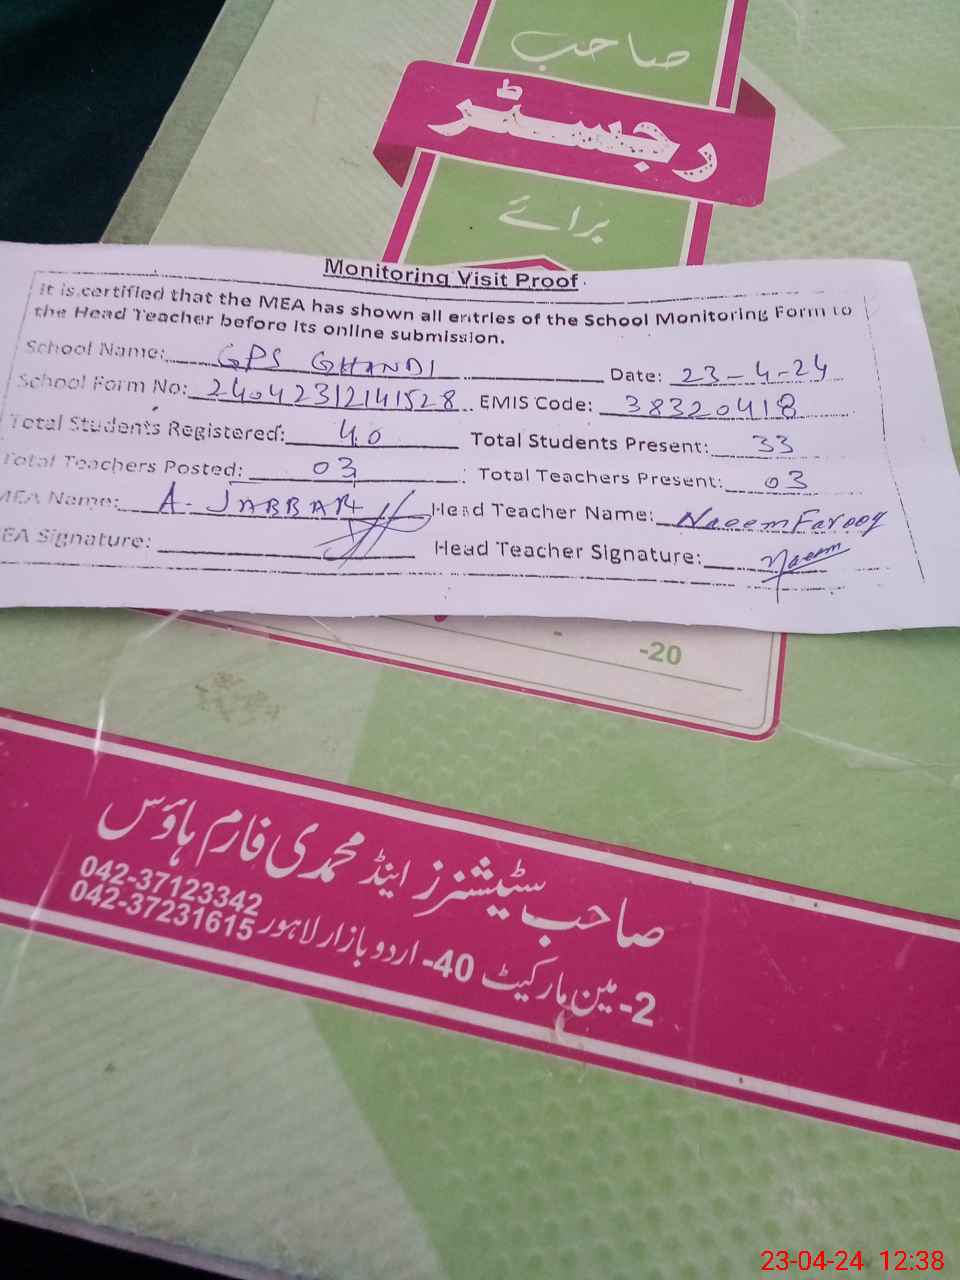 صاحب
رجسٹر
برائے
Monitoring Visit Proof
It is certified that the MEA has shown all entries of the School Monitoring Form to
the Head Teacher before its online submission.
School Name: GPS GHANDI Date: 23-4-24
School Form No: 24042312141528 EMIS Code: 38320418
Total Students Registered: 40 Total Students Present: 33
Total Teachers Posted: 03 Total Teachers Present: 03
MEA Name: A. JABBAR Head Teacher Name: Naeem Farooq
EA Signature: Head Teacher Signature: Naeem
-20
صاحب سٹیشنرز اینڈ محمدی فارم ہاؤس
042-37123342
2-مین مارکیٹ 40-اردو بازار لاہور 042-37231615
23-04-24 12:38